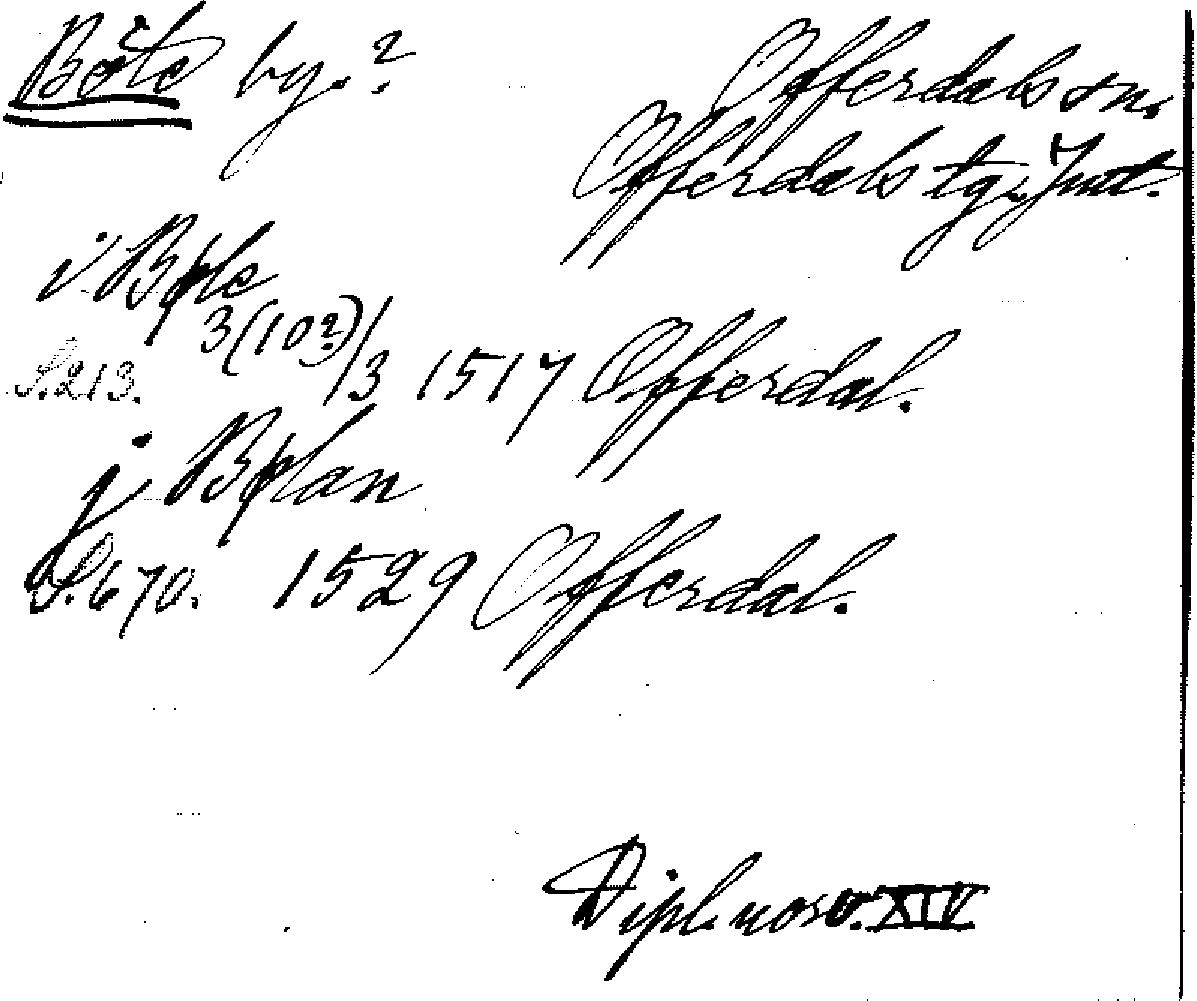 Böle by.?
Offerdals sn.
Offerdals tg. Jmt.
i Bøle
3(10?)/3 1517 Offerdal.
S. 213.
j Bølan
S. 670. 1529 Offerdal.
Dipl. norv. XIV